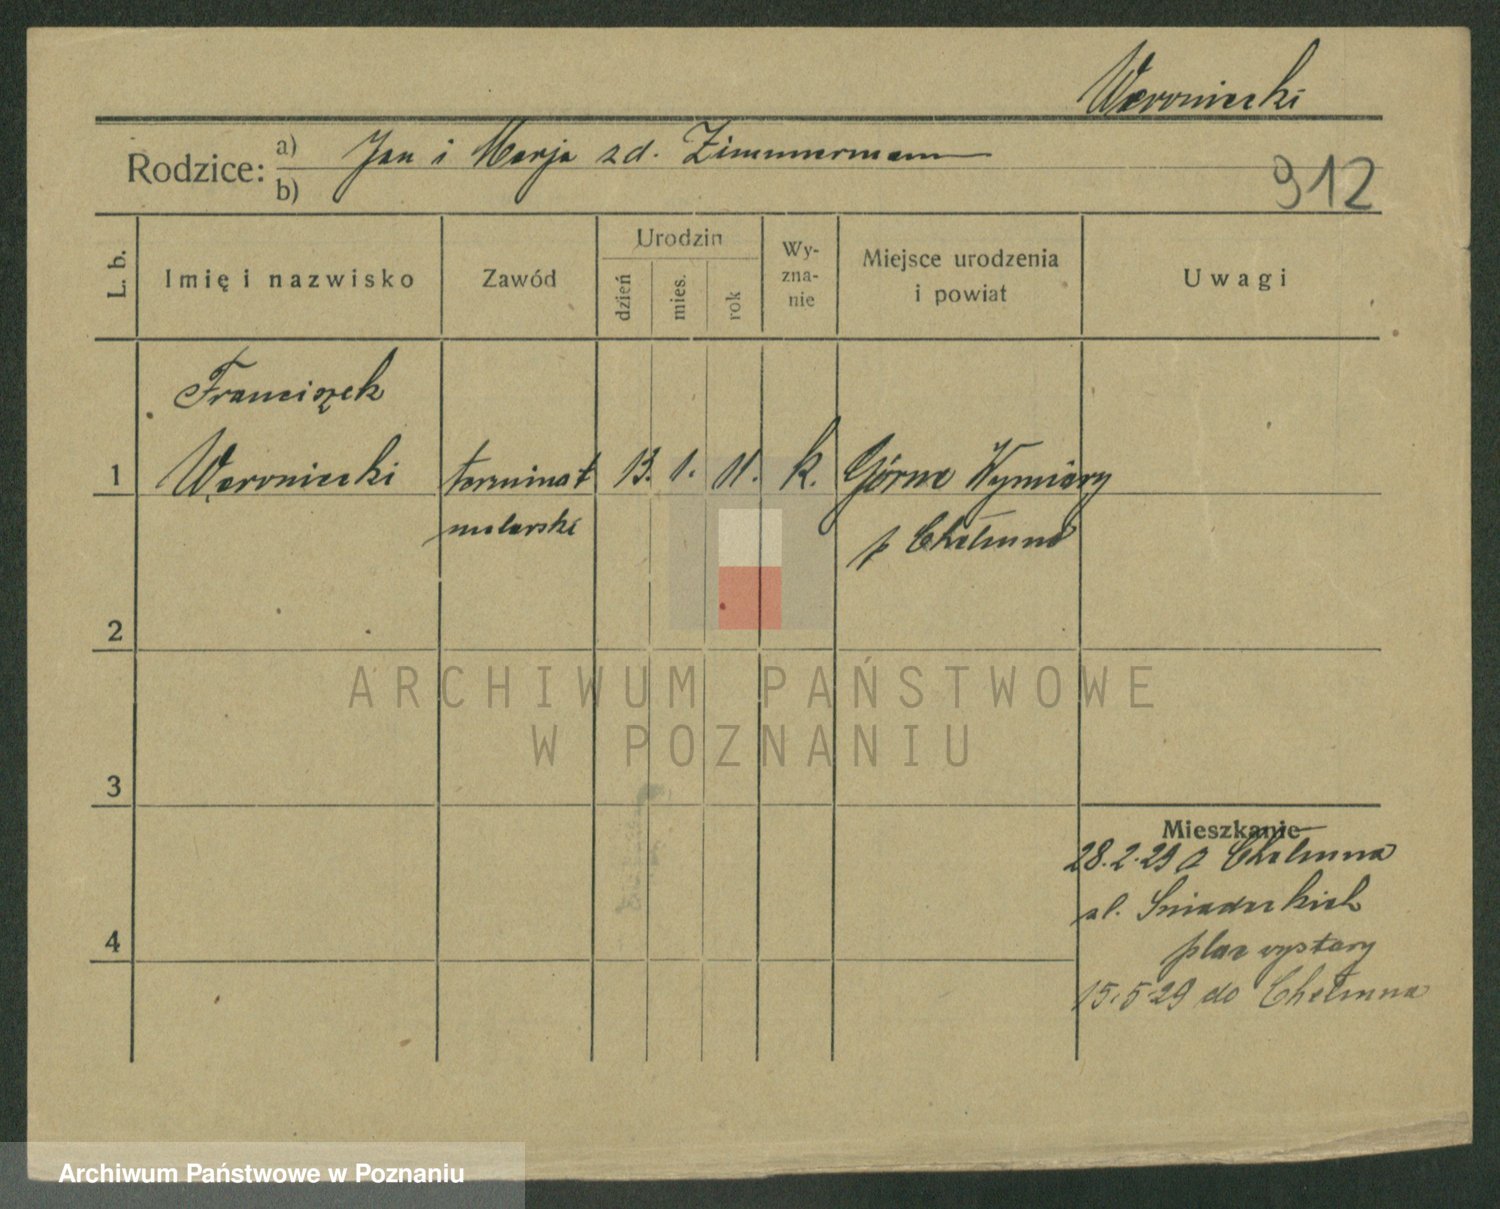 Weroniecki
Rodzice: a) Jan i Marja zd. Zimmermann
b)
912
L. b.
Imię i nazwisko
Zawód
Urodzin
dzień
mies.
rok
Wy-
zna-
nie
Miejsce urodzenia
i powiat
Uwagi
Franciszek
1 Weroniecki terminat 13. 1. 11. k. Górne Wymiary
malarski p Chełmno
2
3
4
Mieszkanie
28.2.29 z Chełmna
ul. Śniadeckich
plac wystawy
15.5.29 do Chełmna
ARCHIWUM PAŃSTWOWE
W POZNANIU
Archiwum Państwowe w Poznaniu